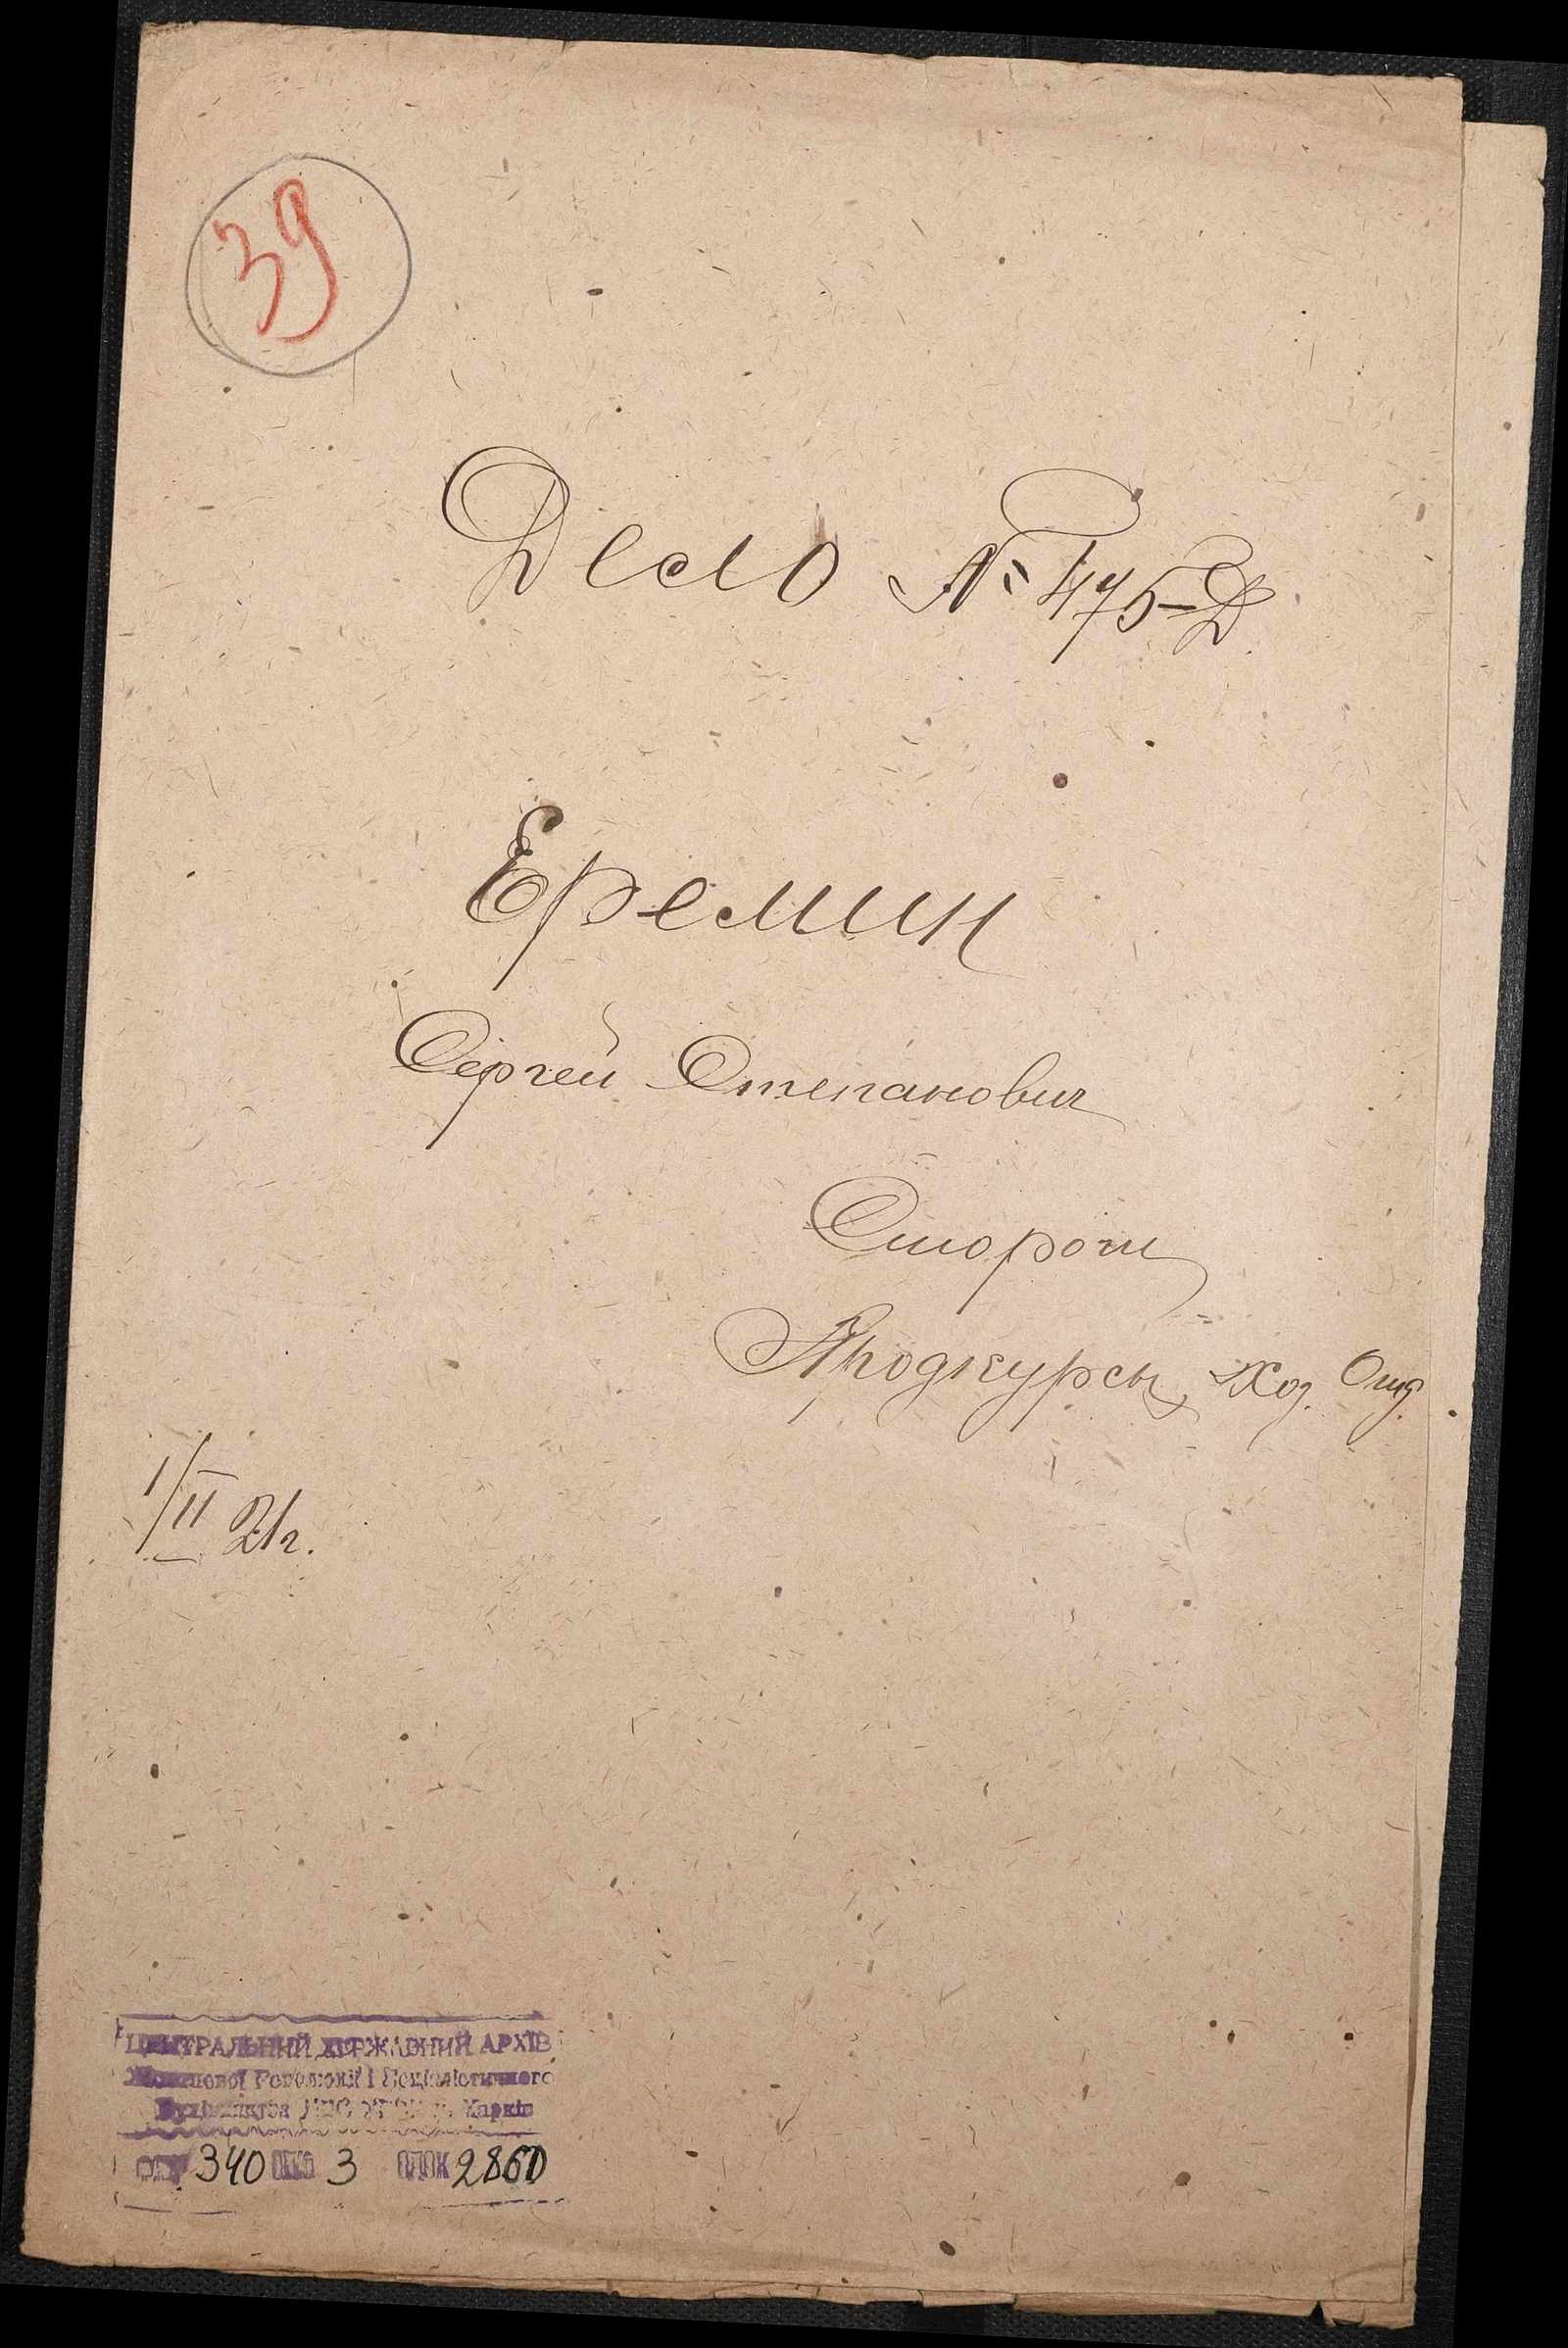 39
Дело № 475-Д
Еремин
Сергей Степанович
Сторож
Продкурсы, Хоз. Отд.
1/II 21г.
ЦЕНТРАЛЬНИЙ ДЕРЖАВНИЙ АРХІВ
Жовтневої Революції і Соціалістичного
Будівництва м. Харків
ФОНД 340 ОПИС 3 2860